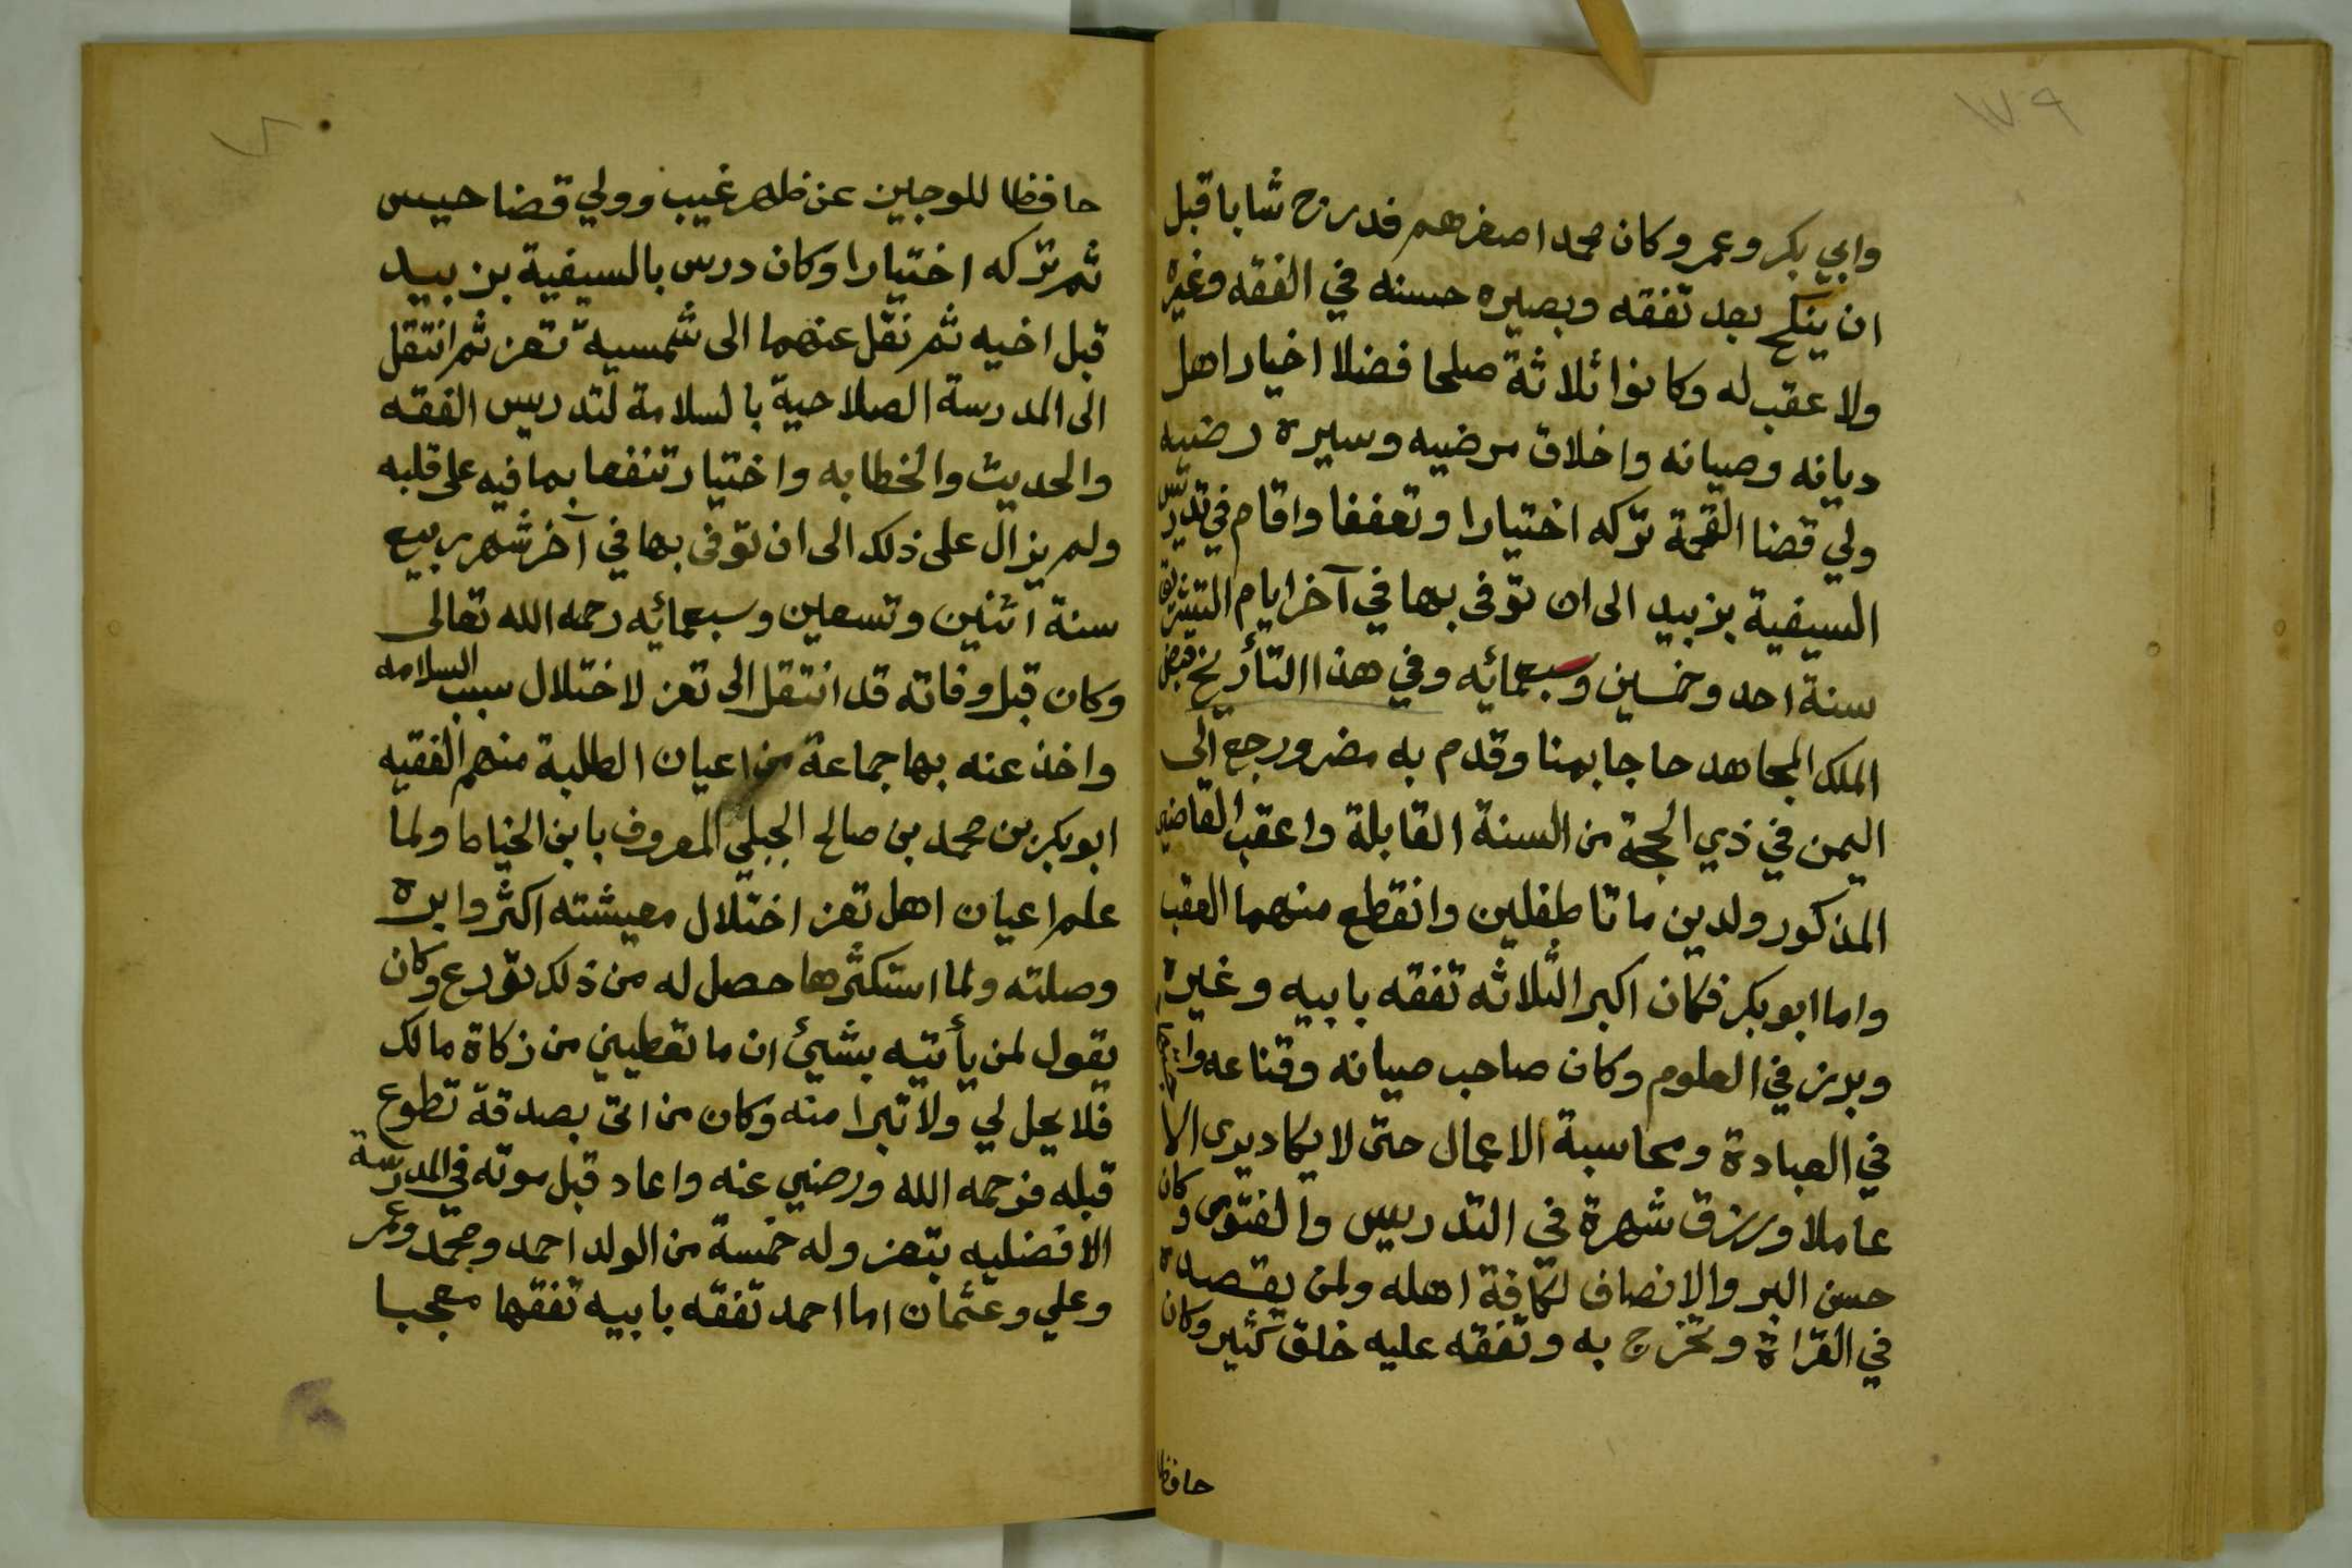 ١٧٩
وابي بكر وعمر وكان محمد اصغرهم فدرج شابا قبل
ان ينكح بعد تفقه وبصيره حسنه في الفقه وغيره
ولا عقب له وكانوا ثلاثة صلحا فضلا اخيار اهل
ديانه وصيانه واخلاق مرضيه وسيرة رضيه
ولي قضا القحمة تركه اختيارا وتعففا واقام في تدريس
السيفية بزبيد الى ان توفى بها في آخر ايام التشريق
سنة احد وخمسين وسبعمائه وفي هذا التأريخ قبض
الملك المجاهد حاجا بمنا وقدم به مضر ورجع الى
اليمن في ذي الحجة من السنة القابلة واعقب القاضي
المذكور ولدين ماتا طفلين وانقطع منهما العقب
واما ابو بكر فكان اكبر الثلاثه تفقه بابيه وغيره
وبرز في العلوم وكان صاحب صيانه وقناعه واجتهاد
في العبادة ومحاسبة الاعمال حتى لا يكاد يرى الا
عاملا ورزق شهرة في التدريس والفتوى وكان
حسن البر والانصاف لكافة اهله ولمن يقصده
في القراة وتخرج به وتفقه عليه خلق كثير وكان
حافظا
حافظا للوجيز عن ظهر غيب وولي قضا حيس
ثم تركه اختيارا وكان درس بالسيفية بزبيد
قبل اخيه ثم نقل عنهما الى شمسية تعز ثم انتقل
الى المدرسة الصلاحية بالسلامة لتدريس الفقه
والحديث والخطابه واختيار تنفعا بما فيه على قلبه
ولم يزال على ذلك الى ان توفى بها في آخر شهر ربيع
سنة اثنين وتسعين وسبعمائه رحمه الله تعالى
وكان قبل وفاته قد انتقل الى تعز لاختلال سبب السلامه
واخذ عنه بها جماعة من اعيان الطلبة منهم الفقيه
ابو بكر بن محمد بن صالح الجبلي المعروف بابن الخياط ولما
علم اعيان اهل تعز اختلال معيشته اكثروا بره
وصلته ولما استكثرها حصل له من ذلك تورع وكان
يقول لمن يأتيه بشيئ ان ما تعطيني من زكاة مالك
فلا يحل لي ولا تبرا منه وكان من اتى بصدقة تطوع
قبله فرحمه الله ورضي عنه واعاد قبل موته في المدرسة
الافضليه بتعز وله خمسة من الولد احمد ومحمد وعمر
وعلي وعثمان اما احمد تفقه بابيه تفقها معجبا